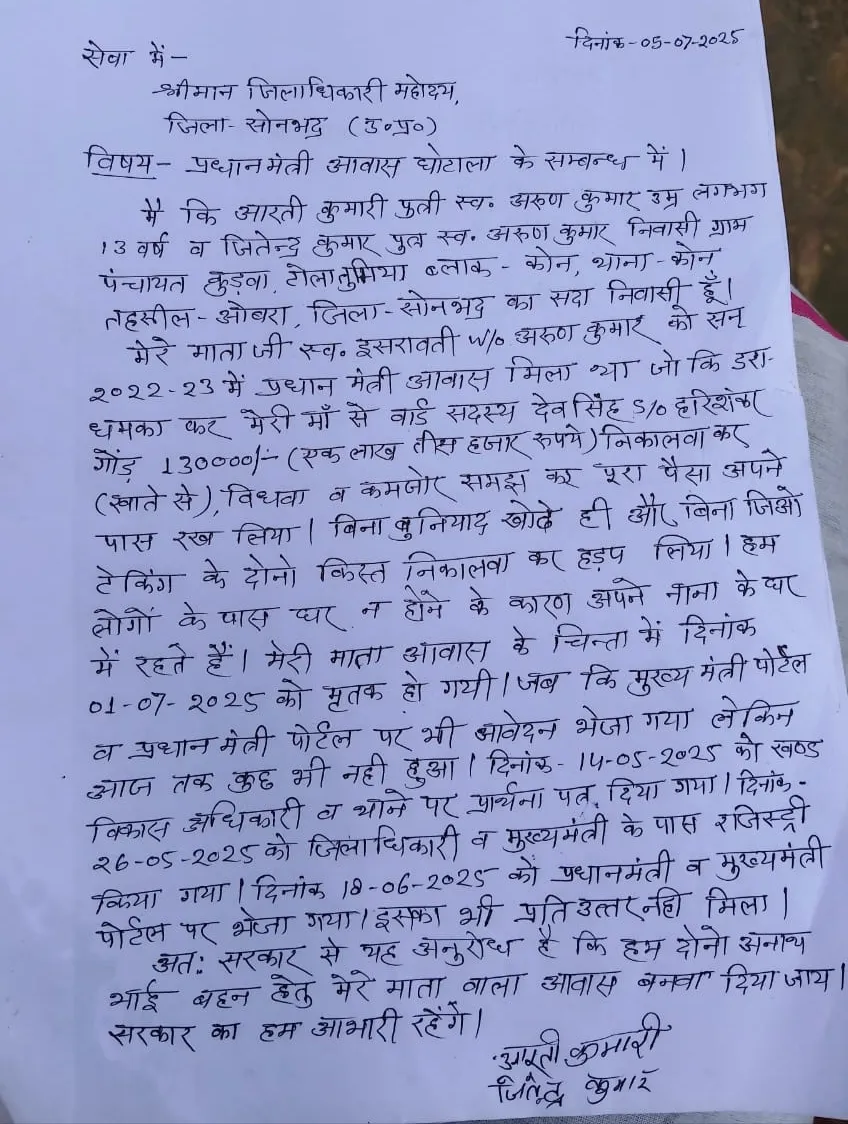 दिनांक-05-07-2025
सेवा में-
श्रीमान जिलाधिकारी महोदय,
जिला- सोनभद्र (उ०प्र०)
विषय- प्रधानमंत्री आवास घोटाला के सम्बन्ध में।
मै कि आरती कुमारी पुत्री स्व. अरुण कुमार उम्र लगभग
13 वर्ष व जितेन्द्र कुमार पुत्र स्व. अरुण कुमार निवासी ग्राम
पंचायत कुड़वा, ब्लाक- कोन, थाना-कोन
तहसील-ओबरा, जिला-सोनभद्र का सदा निवासी हूँ।
मेरे माता जी स्व. इसरावती w/o अरुण कुमार को सन्
2022-23 में प्रधान मंत्री आवास मिला था जो कि डरा-
धमका कर मेरी माँ से वार्ड सदस्य देव सिंह S/o हरिशंकर
गोंड़ 130000/- (एक लाख तीस हजार रुपये) निकालवा कर
(खाते से), विधवा व कमजोर समझ कर पूरा पैसा अपने
पास रख लिया। बिना बुनियाद खोदे ही और बिना जिओ
टेकिंग के दोनो किस्त निकालवा कर हड़प लिया। हम
लोगों के पास घर न होने के कारण अपने नाना के घर
में रहते हैं। मेरी माता आवास के चिन्ता में दिनांक
01-07-2025 को मृतक हो गयी। जब कि मुख्य मंत्री पोर्टल
व प्रधान मंत्री पोर्टल पर भी आवेदन भेजा गया लेकिन
आज तक कुछ भी नही हुआ। दिनांक- 14-05-2025 को खण्ड
विकास अधिकारी व थाने पर प्रार्थना पत्र दिया गया। दिनांक-
26-05-2025 को जिलाधिकारी व मुख्यमंत्री के पास रजिस्ट्री
किया गया। दिनांक 18-06-2025 को प्रधानमंत्री व मुख्यमंत्री
पोर्टल पर भेजा गया। इसका भी प्रति उत्तर नही मिला।
अत: सरकार से यह अनुरोध है कि हम दोनो अनाथ
भाई बहन हेतु मेरे माता वाला आवास बनवा दिया जाय।
सरकार का हम आभारी रहेंगे।
आरती कुमारी
जितेन्द्र कुमार